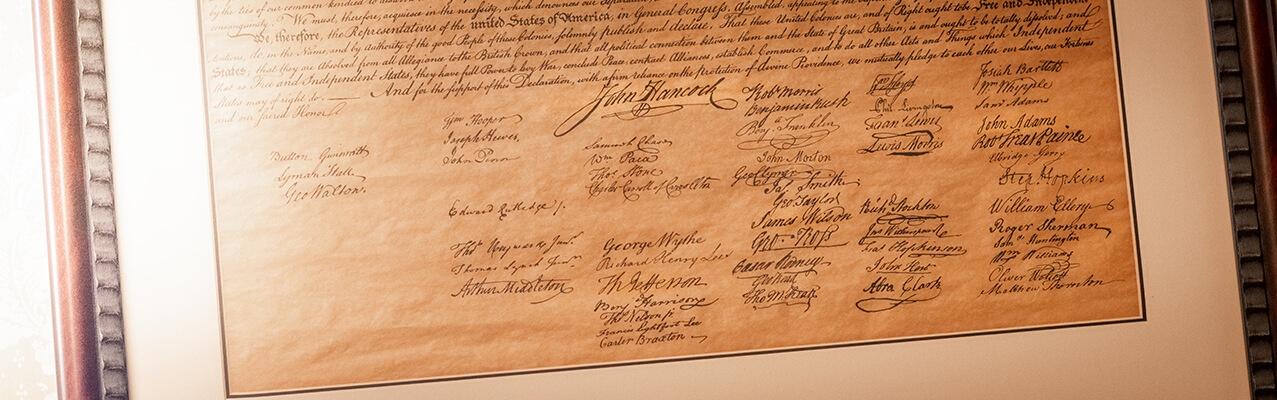 by the ties of our common kindred to disavow
consanguinity. We must, therefore, acquiesce in the necessity, which denounces our Separation,
We, therefore, the Representatives of the united States of America, in General Congress, Assembled, appealing to the
do, in the Name, and by authority of the good People of these Colonies, solemnly publish and declare, That these United Colonies are, and of Right ought to be Free and Independent
States; that they are Absolved from all Allegiance to the British Crown, and that all political connection between them and the State of Great Britain, is and ought to be totally dissolved; and
that as Free and Independent States, they have full Power to levy War, conclude Peace, contract Alliances, establish Commerce, and to do all other Acts and Things which Independent
States may of right do. And for the support of this Declaration, with a firm reliance on the protection of divine Providence, we mutually pledge to each other our Lives, our Fortunes
and our sacred Honor.
John Hancock
Button Gwinnett
Lyman Hall
Geo Walton.
Wm Hooper
Joseph Hewes,
John Penn
Edward Rutledge /.
Thos Heyward Junr.
Thomas Lynch Junr.
Arthur Middleton
Samuel Chase
Wm Paca
Thos Stone
Charles Carroll of Carrollton
George Wythe
Richard Henry Lee
Th Jefferson
Benj Harrison
Thos Nelson jr.
Francis Lightfoot Lee
Carter Braxton
Robt Morris
Benjamin Rush
Benj. Franklin
John Morton
Geo Clymer
Jas. Smith
Geo. Taylor
James Wilson
Geo. Ross
Caesar Rodney
Geo Read
Tho M:Kean
Wm Floyd
Phil. Livingston
Frans. Lewis
Lewis Morris
Richd. Stockton
Jno Witherspoon
Fras. Hopkinson
John Hart
Abra Clark
Josiah Bartlett
Wm Whipple
Saml Adams
John Adams
Robt Treat Paine
Elbridge Gerry
Step. Hopkins
William Ellery
Roger Sherman
Saml Huntington
Wm Williams
Oliver Wolcott
Matthew Thornton